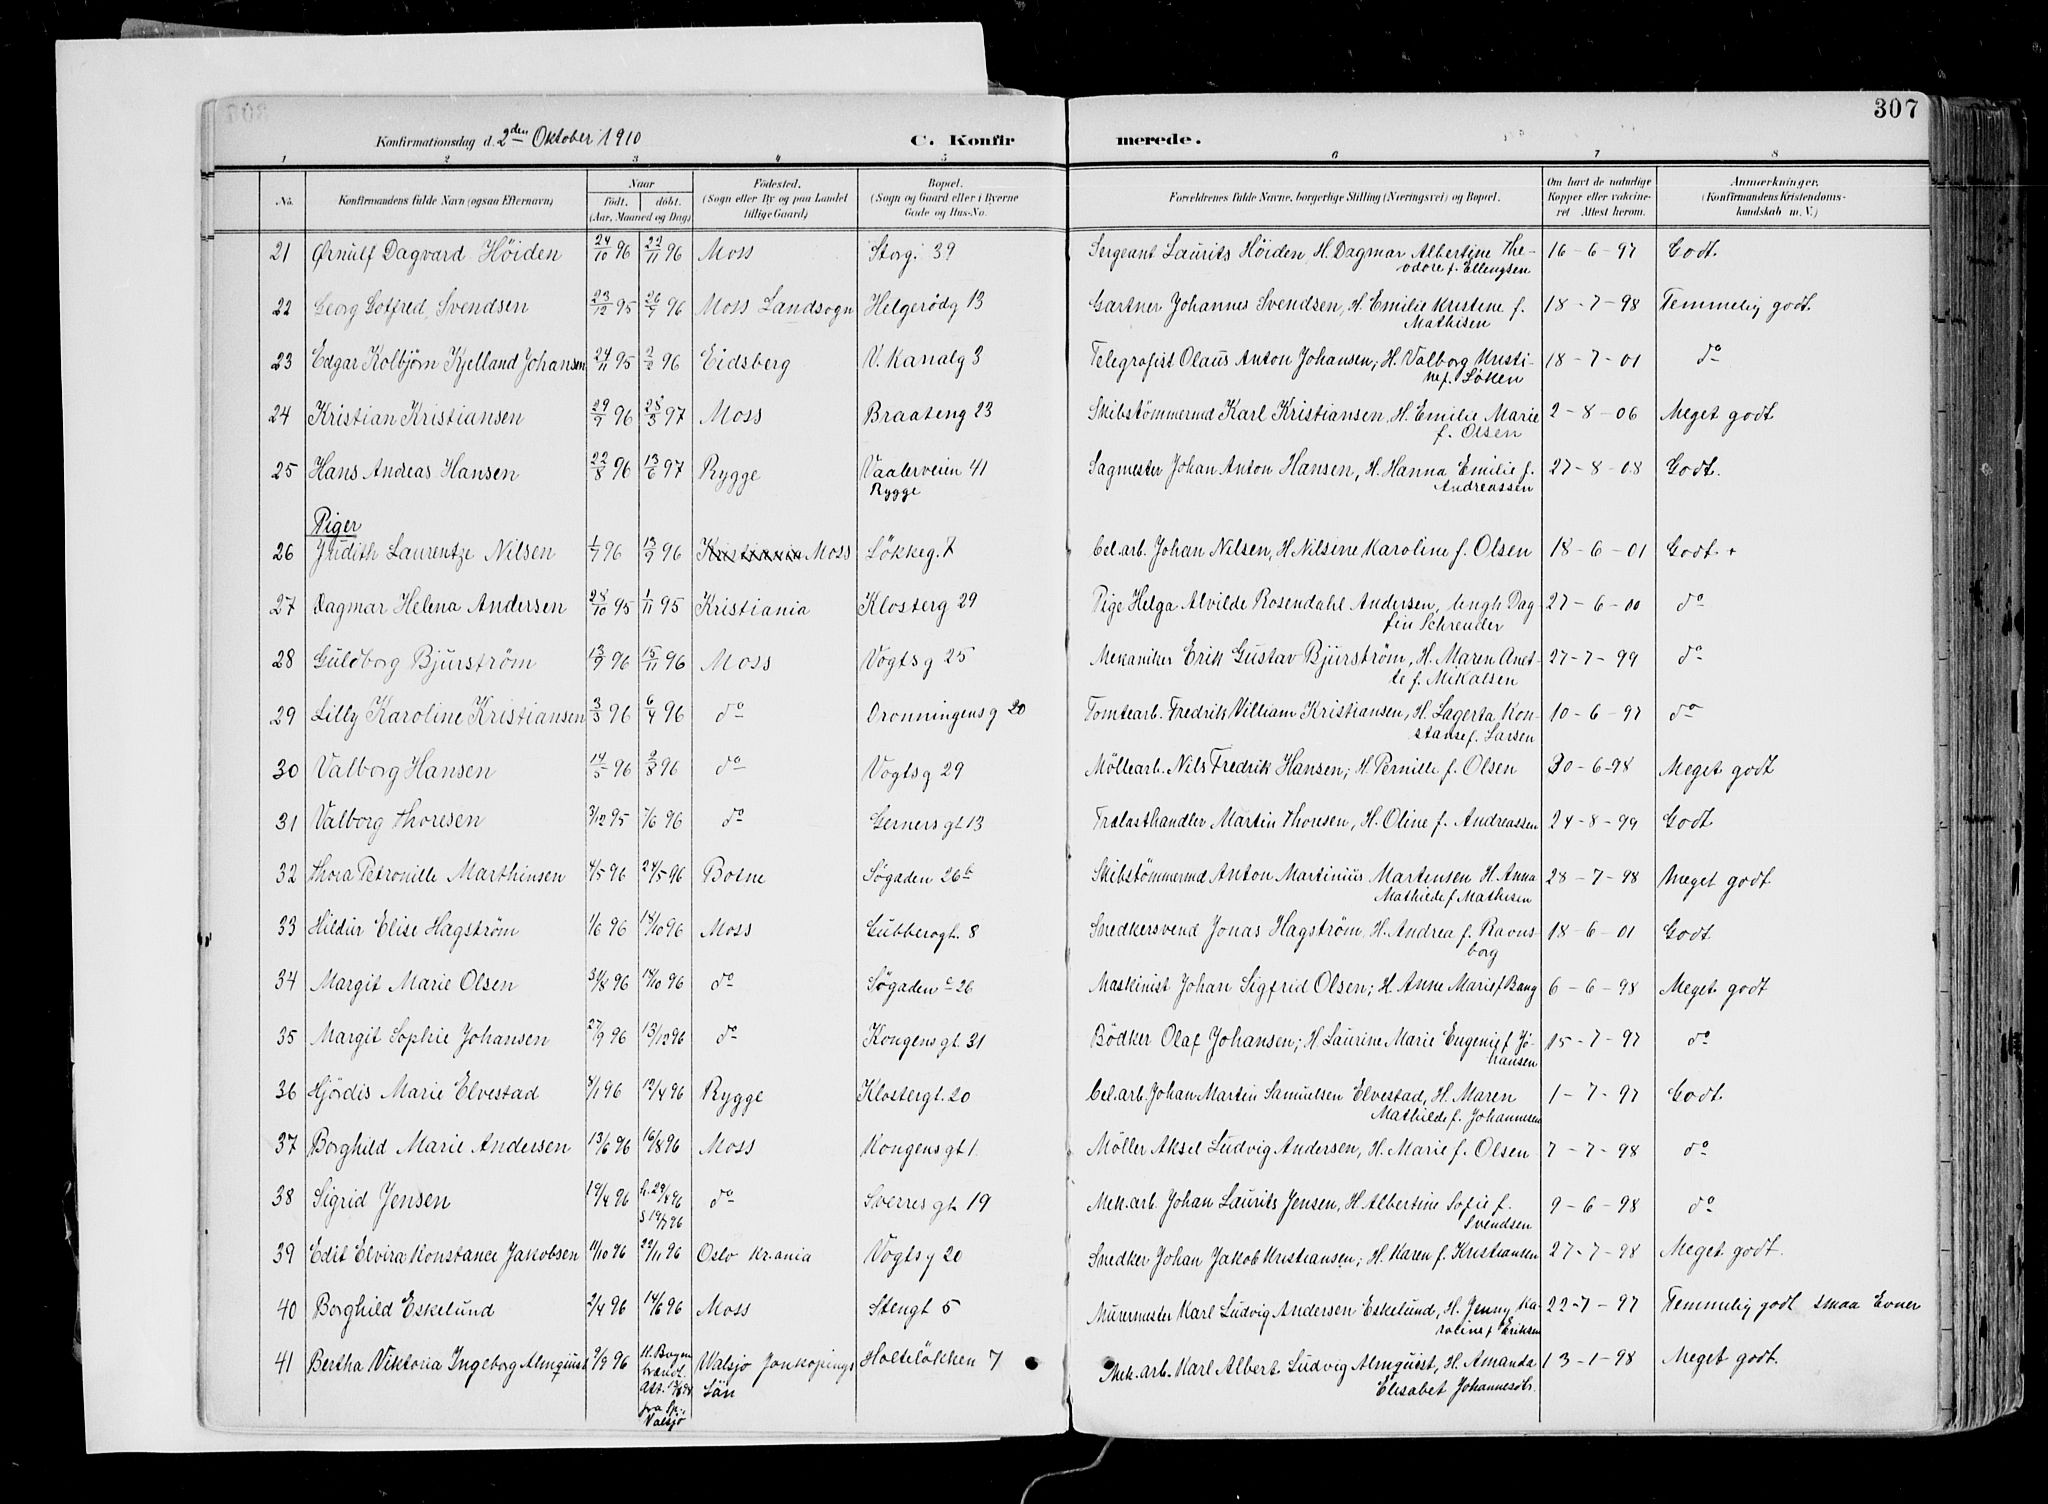 307
Konfirmationsdag d. 2den Oktober 1910 C. Konfirmerede.
1 2 3 4 5 6 7 8
No. Konfirmandens fulde Navn (ogsaa Efternavn) Naar født. døbt. (Aar, Maaned og Dag) Fødested. (Sogn eller By og paa Landet tillige Gaard) Bopæl. (Sogn og Gaard eller i Byerne Gade og Hus-No. Forældrenes fulde Navne, borgerlige Stilling (Næringsvei) og Bopæl. Om havt de naturlige Kopper eller vaccineret Attest herom. Anmærkninger. (Konfirmandens Kristendomskundskab m. V.)
21 Ørnulf Dagvard Höiden 24/10 96 22/11 96 Moss Storg. 39 Sergeant Laurits Höiden, H. Dagmar Albertine Theodore f. Ellengsen 16-6-97 Godt.
22 Georg Gotfred Svendsen 23/12 95 26/9 96 Moss Landsogn Helgerödg 13 Gartner Johannes Svendsen, H. Emilie Kristine f. Mathisen 18-7-98 Temmelig godt.
23 Edgar Kolbjörn Kjelland Johansen 24/11 95 2/2 96 Eidsberg V. Kanalg 3 Telegrafist Olaus Anton Johansen; H. Valborg Kristine f. Löken 18-7-01 do
24 Kristian Kristiansen 29/9 96 28/3 97 Moss Braateng 23 Skibstömmermd Karl Kristiansen, H. Emilie Marie f. Olsen 2-8-06 Meget godt
25 Hans Andreas Hansen 22/8 96 13/6 97 Rygge Vaalerveien 41 Rygge Sagmester Johan Anton Hansen, H. Hanna Emilie f. Andreassen 27-8-08 Godt.
Piger
26 Judith Laurentze Nilsen 1/7 96 13/9 96 Kristiania Moss Lökkeg. 7 Cel.arb. Johan Nilsen, H. Nilsine Karoline f. Olsen 18-6-01 Godt +
27 Dagmar Helena Andersen 28/10 95 1/11 95 Kristiania Klosterg 29 Pige Helga Alvilde Rosendahl Andersen, Ungk Dagfin Schreuder 27-6-00 do
28 Guldborg Bjurström 13/9 96 15/11 96 Moss Vogtsg 25 Mekaniker Erik Gustav Bjurström, H. Maren Anette f. Mikalsen 27-7-99 do
29 Lilly Karoline Kristiansen 3/3 96 6/4 96 do Dronningensg 20 Tomtearb. Fredrik William Kristiansen, H. Lagerta Konstanse f. Larsen 10-6-97 do
30 Valborg Hansen 14/5 96 2/8 96 do Vogtsg 29 Möllearb. Nils Fredrik Hansen; H. Pernille f. Olsen 30-6-98 Meget godt
31 Valborg Thoresen 3/12 95 7/6 96 do Gernersgt 13 Trælasthandler Martin Thoresen, H. Oline f. Andreassen 24-8-99 Godt
32 Thora Petronille Marthinsen 4/5 96 24/5 96 Botne Søgaden 26b Skibstömmermd Anton Martinius Martensen H. Anna Mathilde f Mathisen 28-7-98 Meget godt.
33 Hildur Elise Hagström 1/6 96 18/10 96 Moss Gubberogt. 8 Snedkersvend Jonas Hagström, H. Andrea f. Ravnsborg 18-6-01 Godt.
34 Margit Marie Olsen 31/8 96 18/10 96 do Søgaden c 26 Maskinist Johan Sigfrid Olsen; H. Anne Marie f Bang 6-6-98 Meget godt
35 Margit Sophie Johansen 27/9 96 13/12 96 do Kongensgt. 31 Bödker Olaf Johansen; H. Laurine Marie Eugenie f Johansen 15-7-97 do
36 Hjördis Marie Elvestad 8/1 96 12/4 96 Rygge Klostergt. 20 Cel.arb. Johan Martin Samuelsen Elvestad, H. Maren Mathilde f. Johannesen 1-7-97 Godt.
37 Borghild Marie Andersen 13/6 96 16/8 96 Moss Kongensgt 1. Möller Aksel Ludvig Andersen, H. Marie f. Olsen 7-7-98 do
38 Sigrid Jensen 19/4 96 h. 29/4 96 S 19/7 96 do Sverresgt 19 Mek.arb. Johan Laurits Jensen, H. Albertine Sofie f. Svendsen 9-6-98 do
39 Edit Elvira Konstance Jakobsen 11/10 96 22/11 96 Oslo Kr.ania Vogtsg 20 Snedker Johan Jakob Kristiansen; H. Karen f. Kristiansen 27-7-98 Meget godt.
40 Borghild Eskelund 2/4 96 14/6 96 Moss Stengt 5 Murermester Karl Ludvig Andersen Eskelund, H. Jenny Karoline f Eriksen 22-7-97 Temmelig godt smaa Evner
41 Bertha Viktoria Ingeborg Almquist 9/9 96 brændt. Att. fra Sp. Valsjö Walsjö Jonköpings Län Holtelökken 7 Mek.arb. Karl Albert Ludvig Almquist, H. Amanda Elisabet Johannesdtr. 13-1-98 Meget godt.